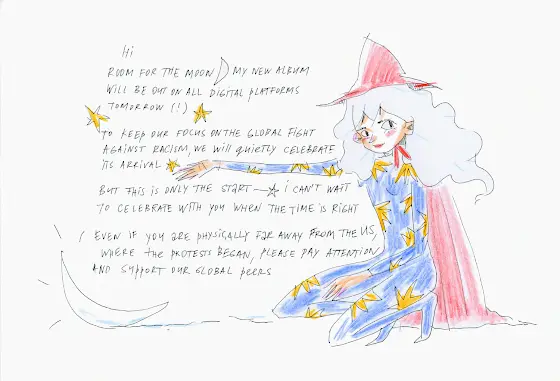 Hi
ROOM FOR THE MOON MY NEW ALBUM
WILL BE OUT ON ALL DIGITAL PLATFORMS
TOMORROW (!)
TO KEEP OUR FOCUS ON THE GLOBAL FIGHT
AGAINST RACISM, WE WILL QUIETLY CELEBRATE
ITS ARRIVAL
BUT THIS IS ONLY THE START — I CAN'T WAIT
TO CELEBRATE WITH YOU WHEN THE TIME IS RIGHT
EVEN IF YOU ARE PHYSICALLY FAR AWAY FROM THE US,
WHERE THE PROTESTS BEGAN, PLEASE PAY ATTENTION
AND SUPPORT OUR GLOBAL PEERS